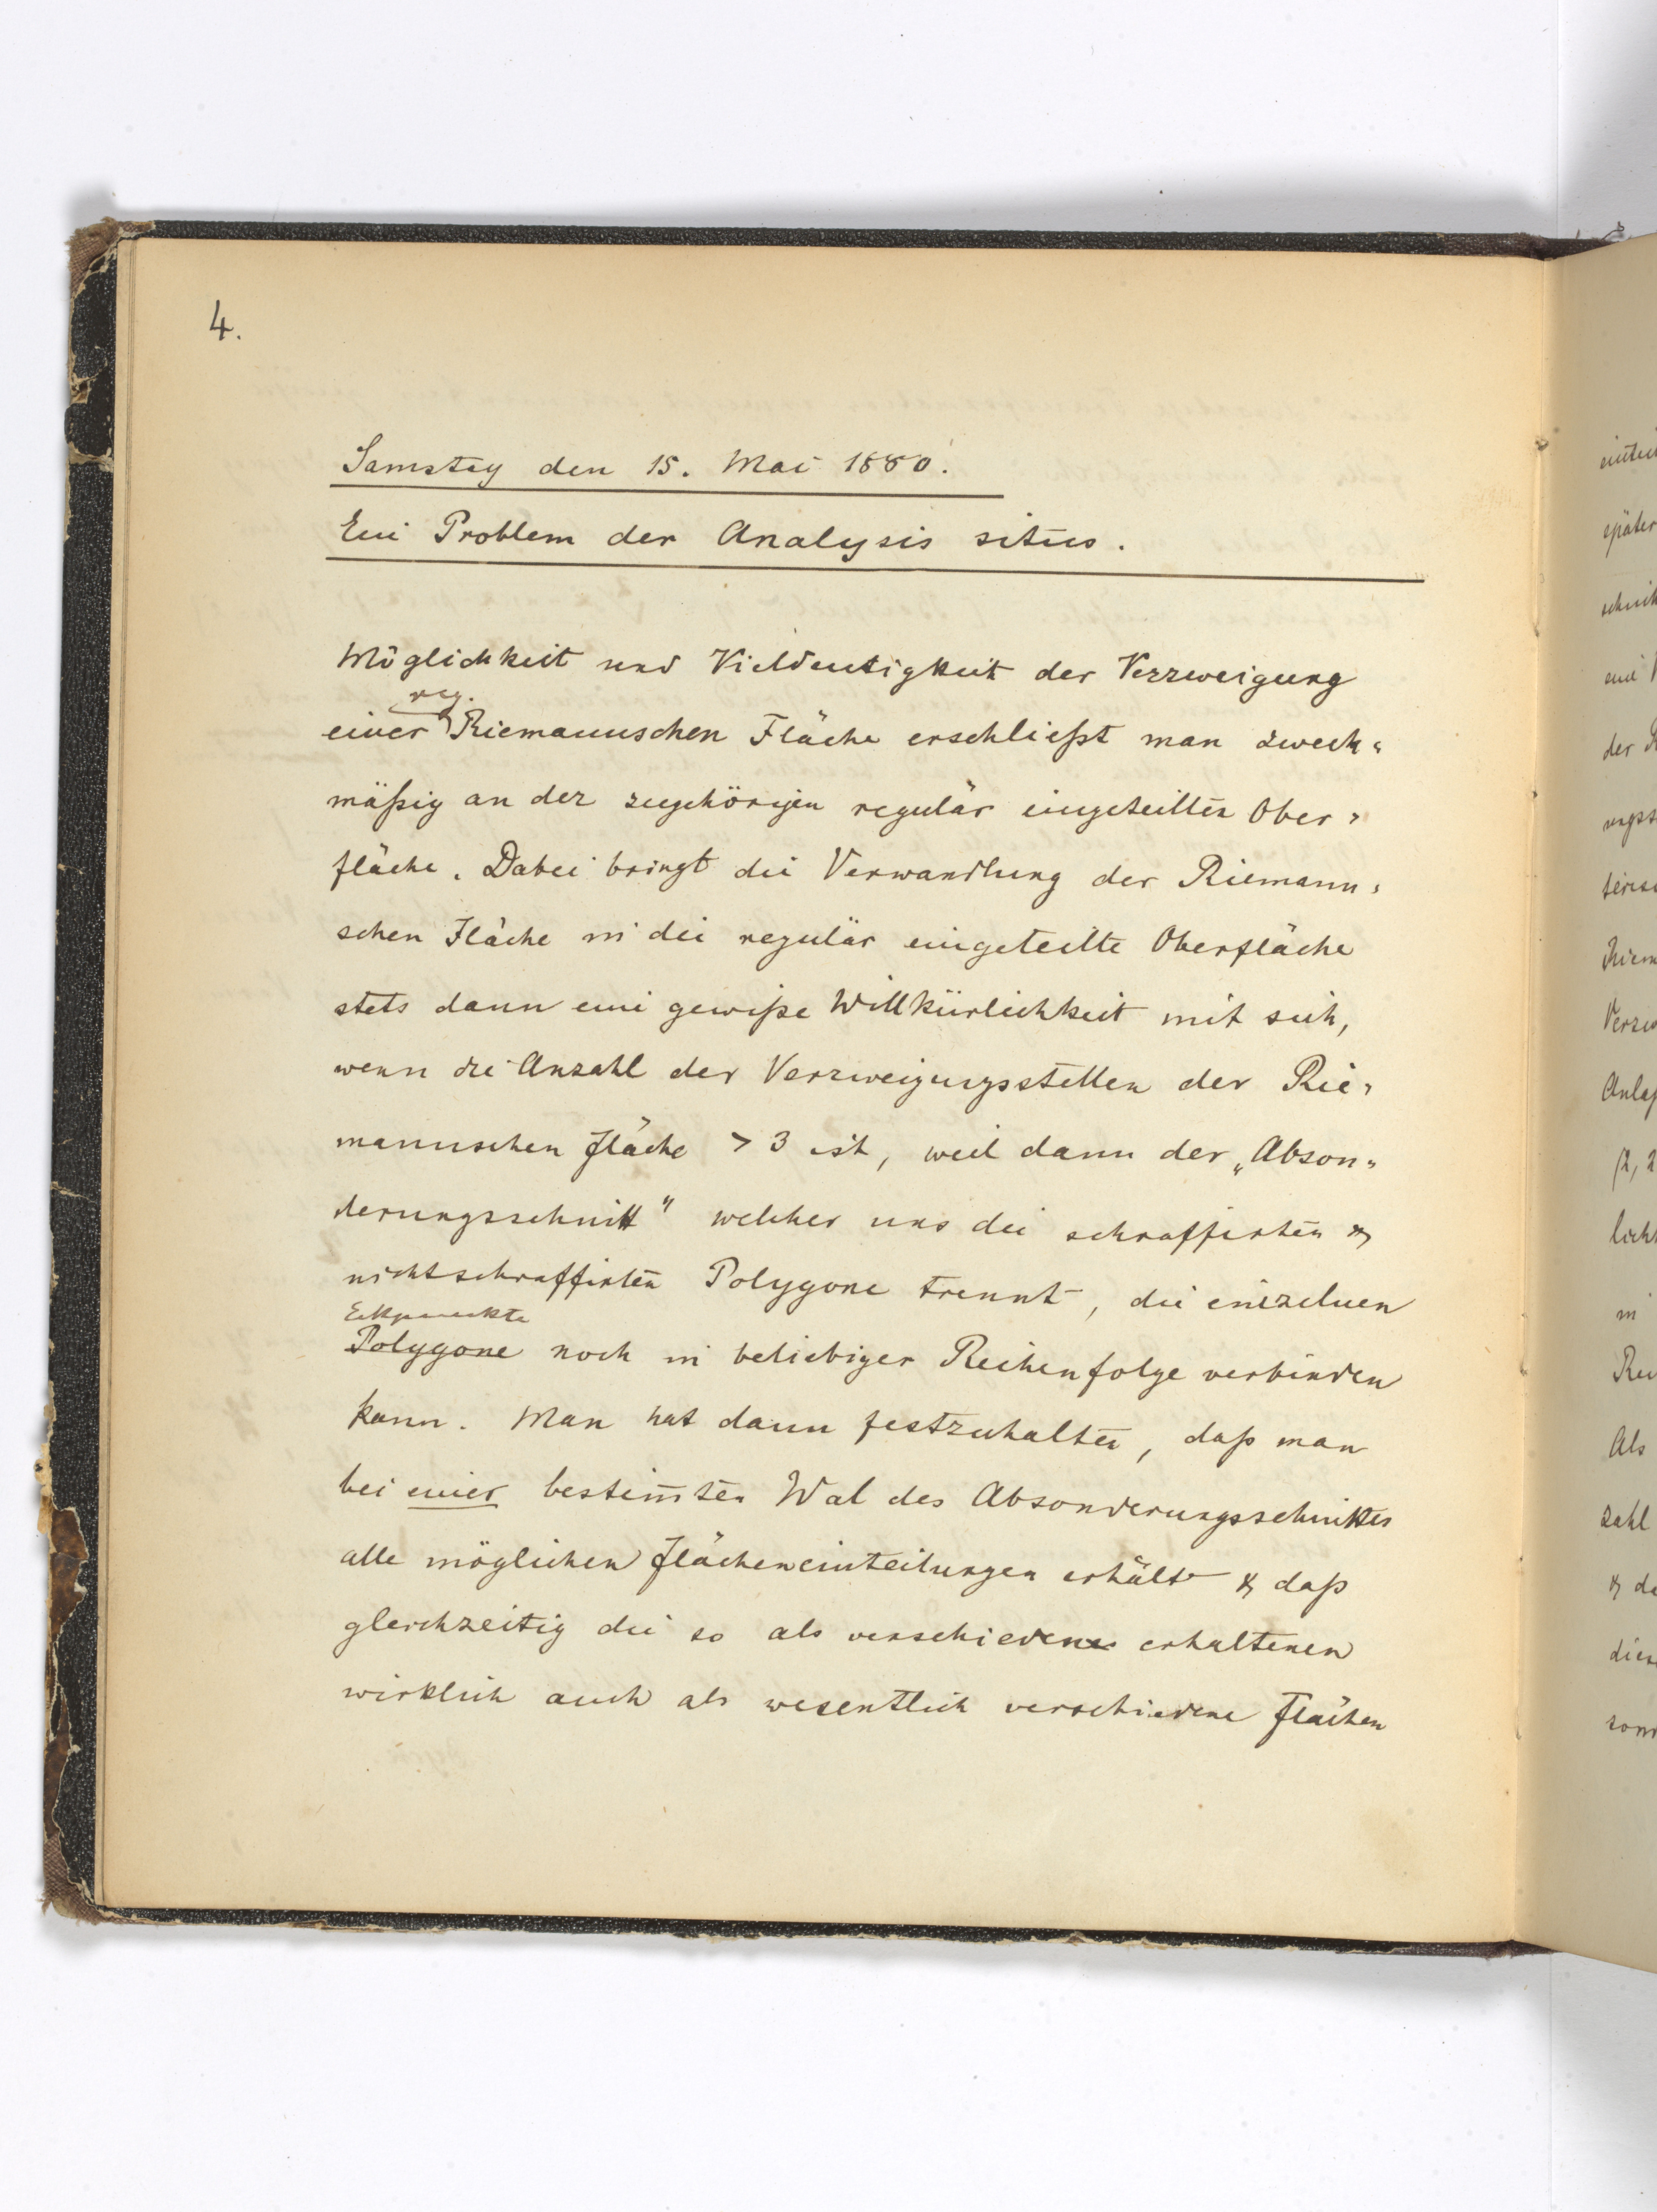 4.
Samstag den 15. Mai 1880.
Ein Problem der Analysis situs.
Möglichkeit und Vieldeutigkeit der Verzweigung
reg.
einer Riemannschen Fläche erschließt man zweck=
mäßig an der zugehörigen regulär eingeteilten Ober=
fläche. Dabei bringt die Verwandlung der Riemann=
schen Fläche in die regulär eingeteilte Oberfläche
stets dann eine gewiße Willkürlichkeit mit sich,
wenn die Anzahl der Verzweigungsstellen der Rie=
mannschen Fläche > 3 ist, weil dann der „Abson=
derungsschnitt" welcher uns die schraffirten &
nichtschraffirten Polygone trennt, die einzelnen
Eckpunkte
Polygone noch in beliebiger Reihenfolge verbinden
kann. Man hat dann festzuhalten, daß man
bei einer bestim̅ten Wal des Absonderungsschnittes
alle möglichen Flächeneinteilungen erhält & daß
gleichzeitig die so als verschieden erhaltenen
wirklich auch als wesentlich verschiedene Flächen